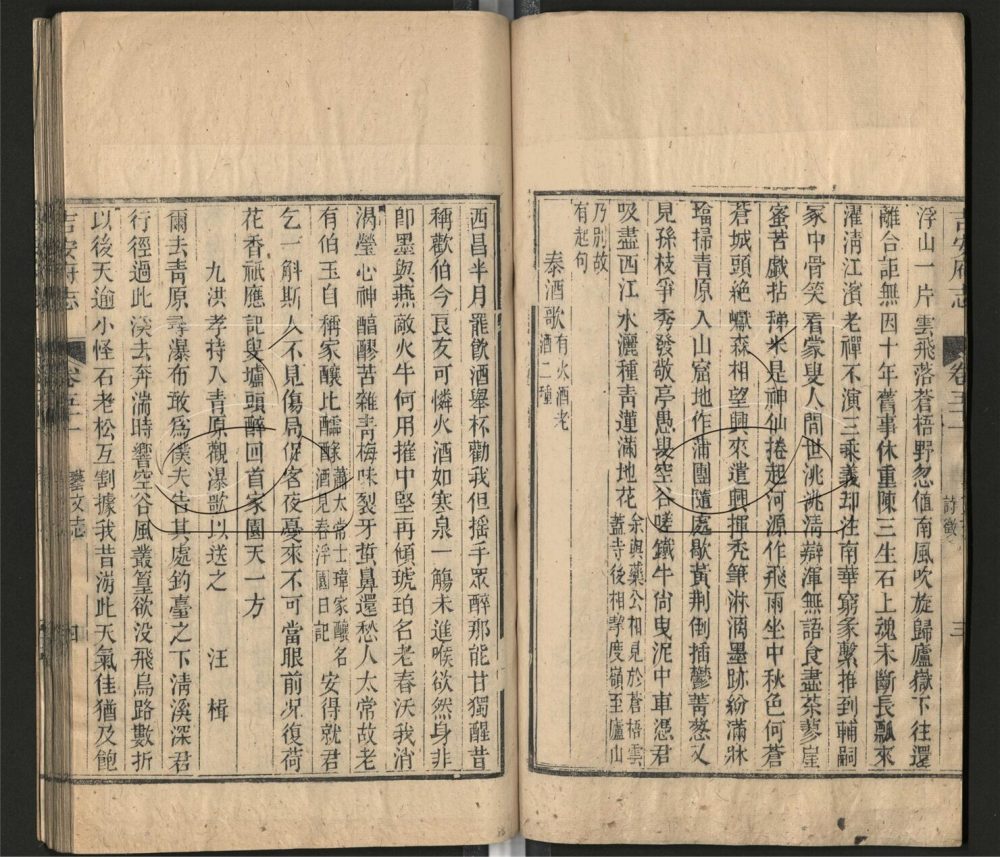 浮山一片雲飛落蒼梧野忽值南風吹旋歸廬嶽下往還
離合詎無因十年舊事休重陳三生石上魂未斷長瓢來
濯淸江濱老禪不演三乘義却注南華窮象繫推到輔嗣
冢中骨笑看蒙叟人間世洮洮淸辯渾無語食盡荼蓼崖
蜜苦戲拈稊米是神仙捲起河源作飛雨坐中秋色何蒼
蒼城頭絶巘森相望興來遣興揮禿筆淋漓墨跡紛滿牀
掃靑原入山窟地作蒲團隨處歇黃荆倒插鬱菁葱又
見孫枝爭秀發敬亭愚叟空谷嗟鐵牛尙曳泥中車憑君
吸盡西江水灑種靑蓮滿地花余與藥公相見於蒼梧雲
蓋寺後相挈度嶺至廬山
乃別故
有起句
泰酒歌有火酒老
酒二種
西昌半月罷飮酒舉杯勸我但搖手眾醉那能甘獨醒昔
稱歡伯今良友可憐火酒如寒泉一觴未進喉欲然身非
卽墨與燕敵火牛何用摧中堅再傾琥珀名老春沃我消
渴瑩心神醅醪苦雜靑梅味裂牙螫鼻還愁人太常故老
有伯玉自稱家釀比醽醁蕭太常士瑋家釀名
酒見春浮園日記安得就君
乞一斛斯人不見傷局促客夜憂來不可當眼前況復荷
花香祗應記叟壚頭醉回首家園天一方
九洪孝持入靑原觀瀑歌以送之　汪　楫
爾去靑原尋瀑布敢爲僕夫告其處釣臺之下淸溪深君
行徑過此溪去奔湍時響空谷風叢篁欲没飛鳥路數折
以後天逾小怪石老松互割據我昔游此天氣佳猶及飽
吉安府志
卷五十一
詩徵
三
吉安府志
卷五十一
藝文志
四